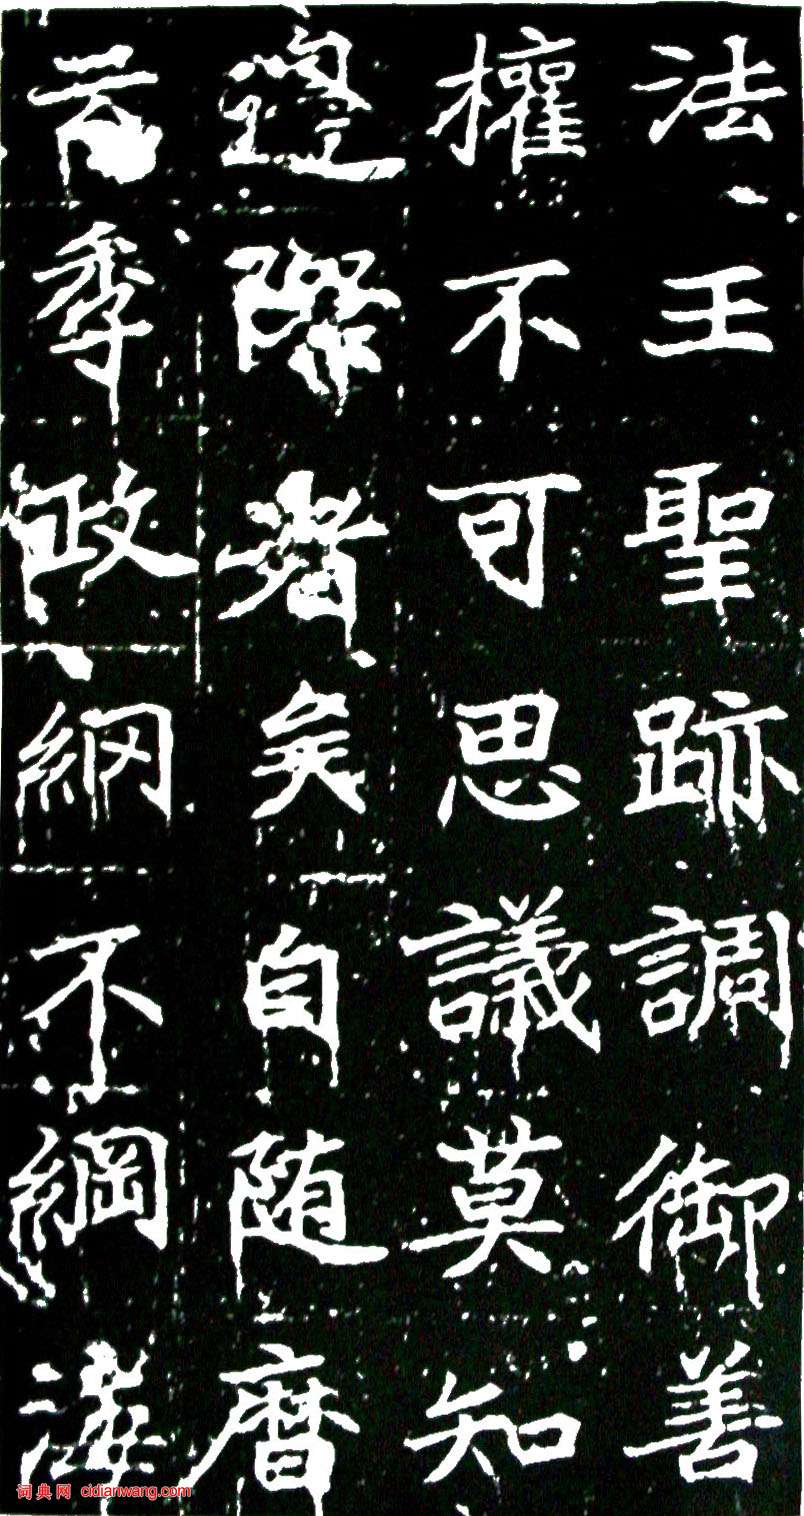 法王聖跡調御善
權不可思議莫知
邊際者矣自隨曆
云季政網不綱
词典网 cidianwang.com